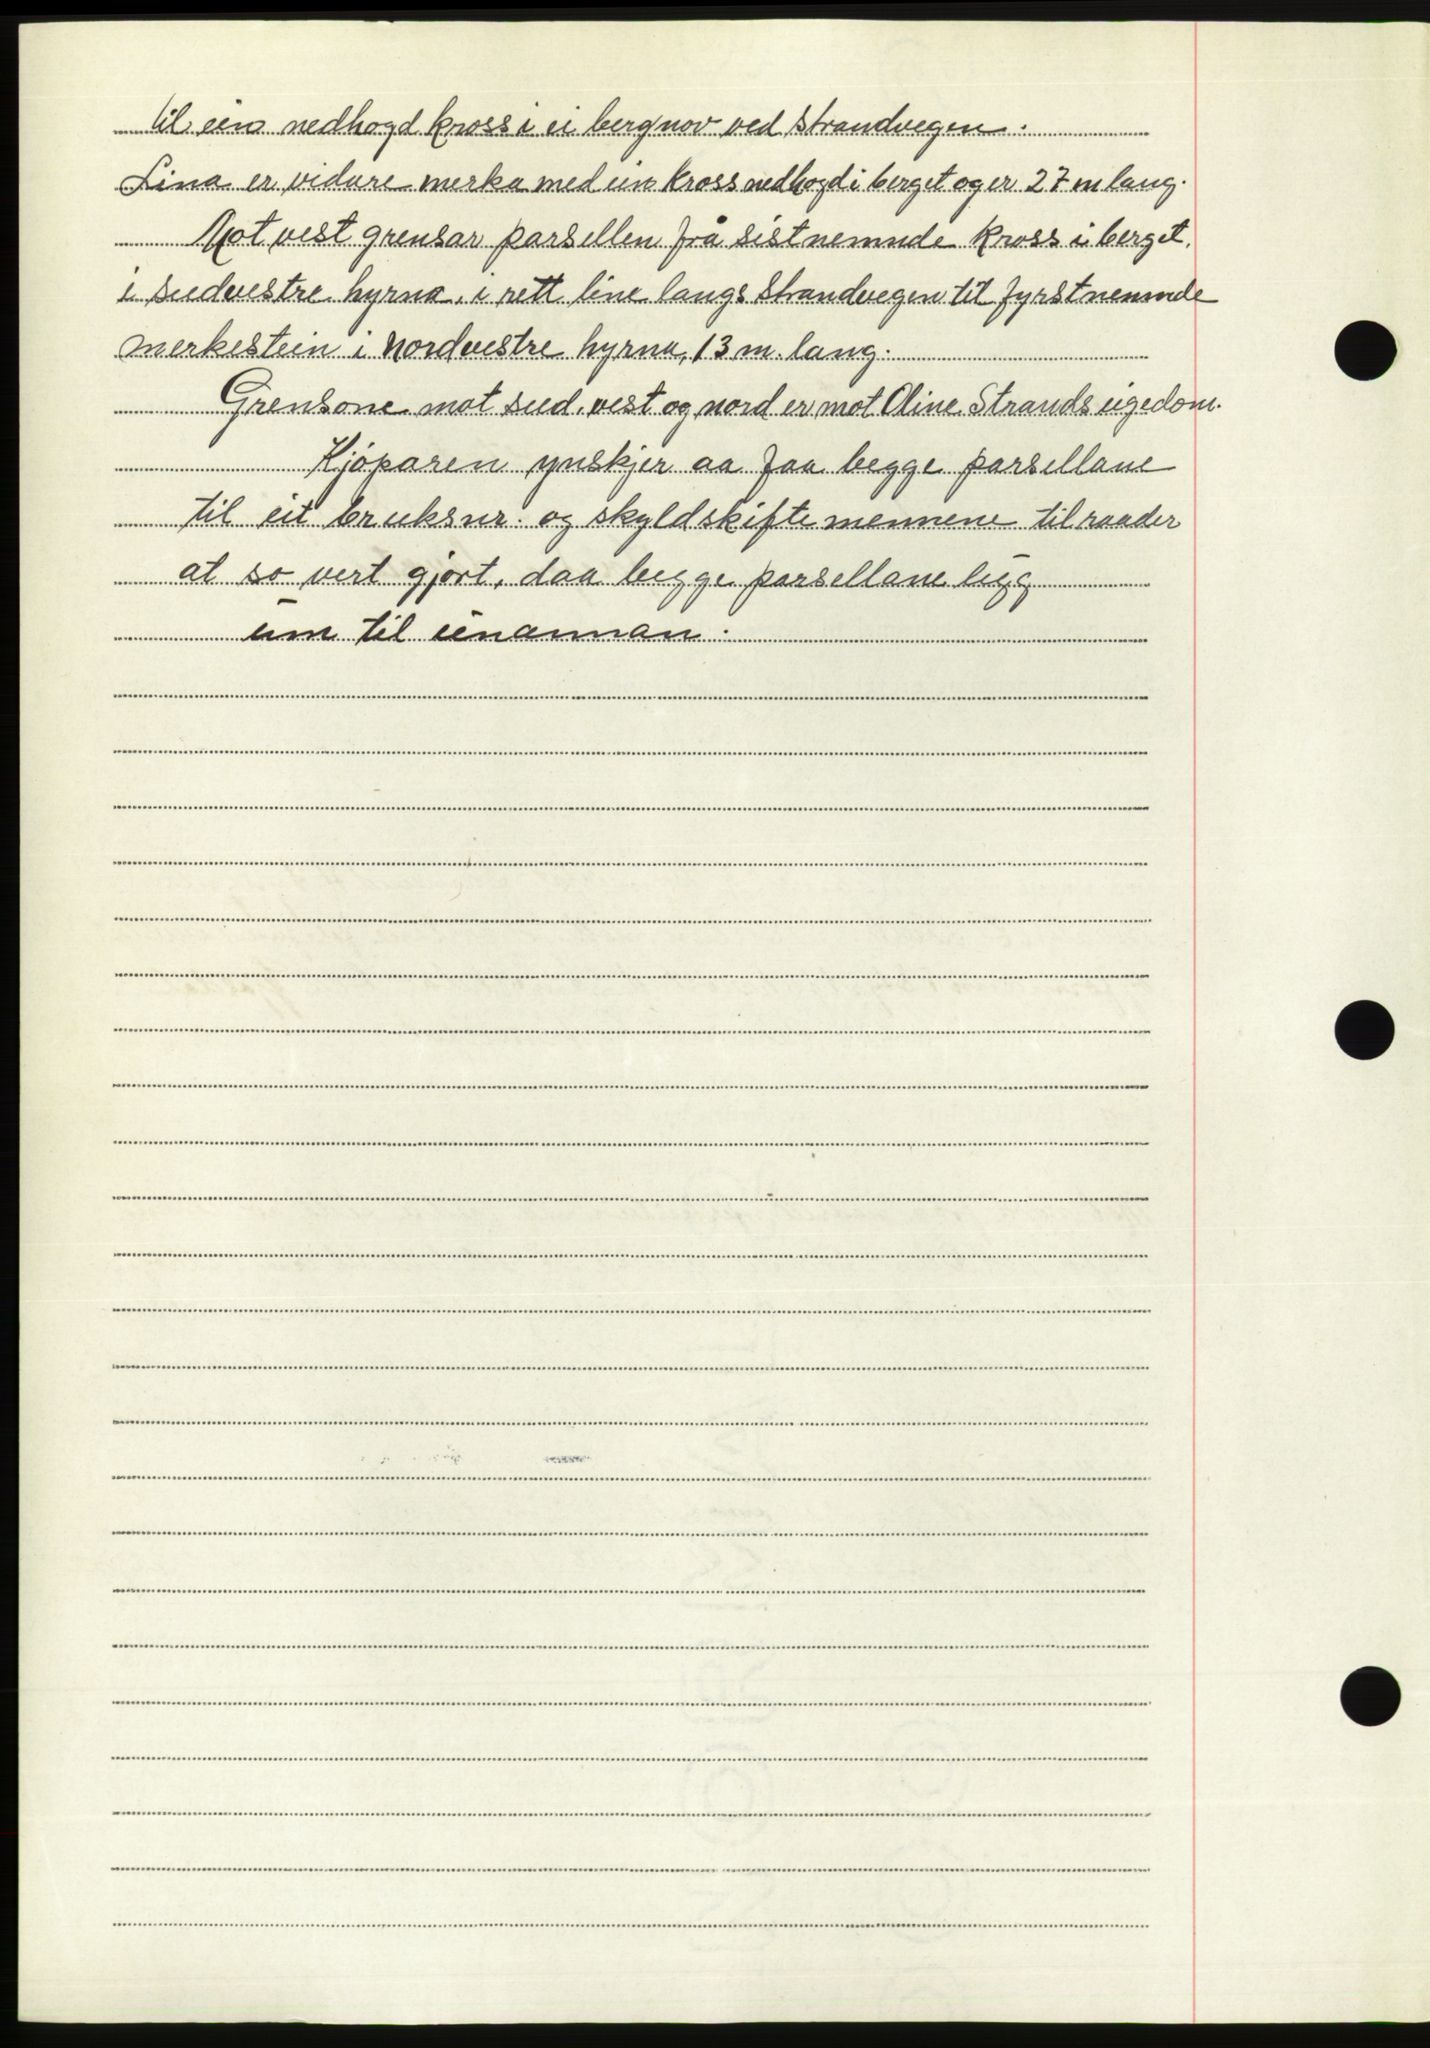 til ein nedhogd kross i ei bergnov ved strandvegen.
Lina er vidare merka med ein kross nedhogd i berget og er 27 m lang.
Mot vest grensar parsellen frå sistnemnde kross i berget,
i sudvestre hyrna, i rett line langs strandvegen til fyrstnemnde
merkestein i nordvestre hyrna, 13 m. lang.
Grensone mot sud, vest og nord er mot Oline Strands eigedom.
Kjøparen ynskjer aa faa begge parsellane
til eit bruksnr. og skyldskiftemennene tilraader
at so vert gjort, daa begge parsellane ligg
um til einannan.